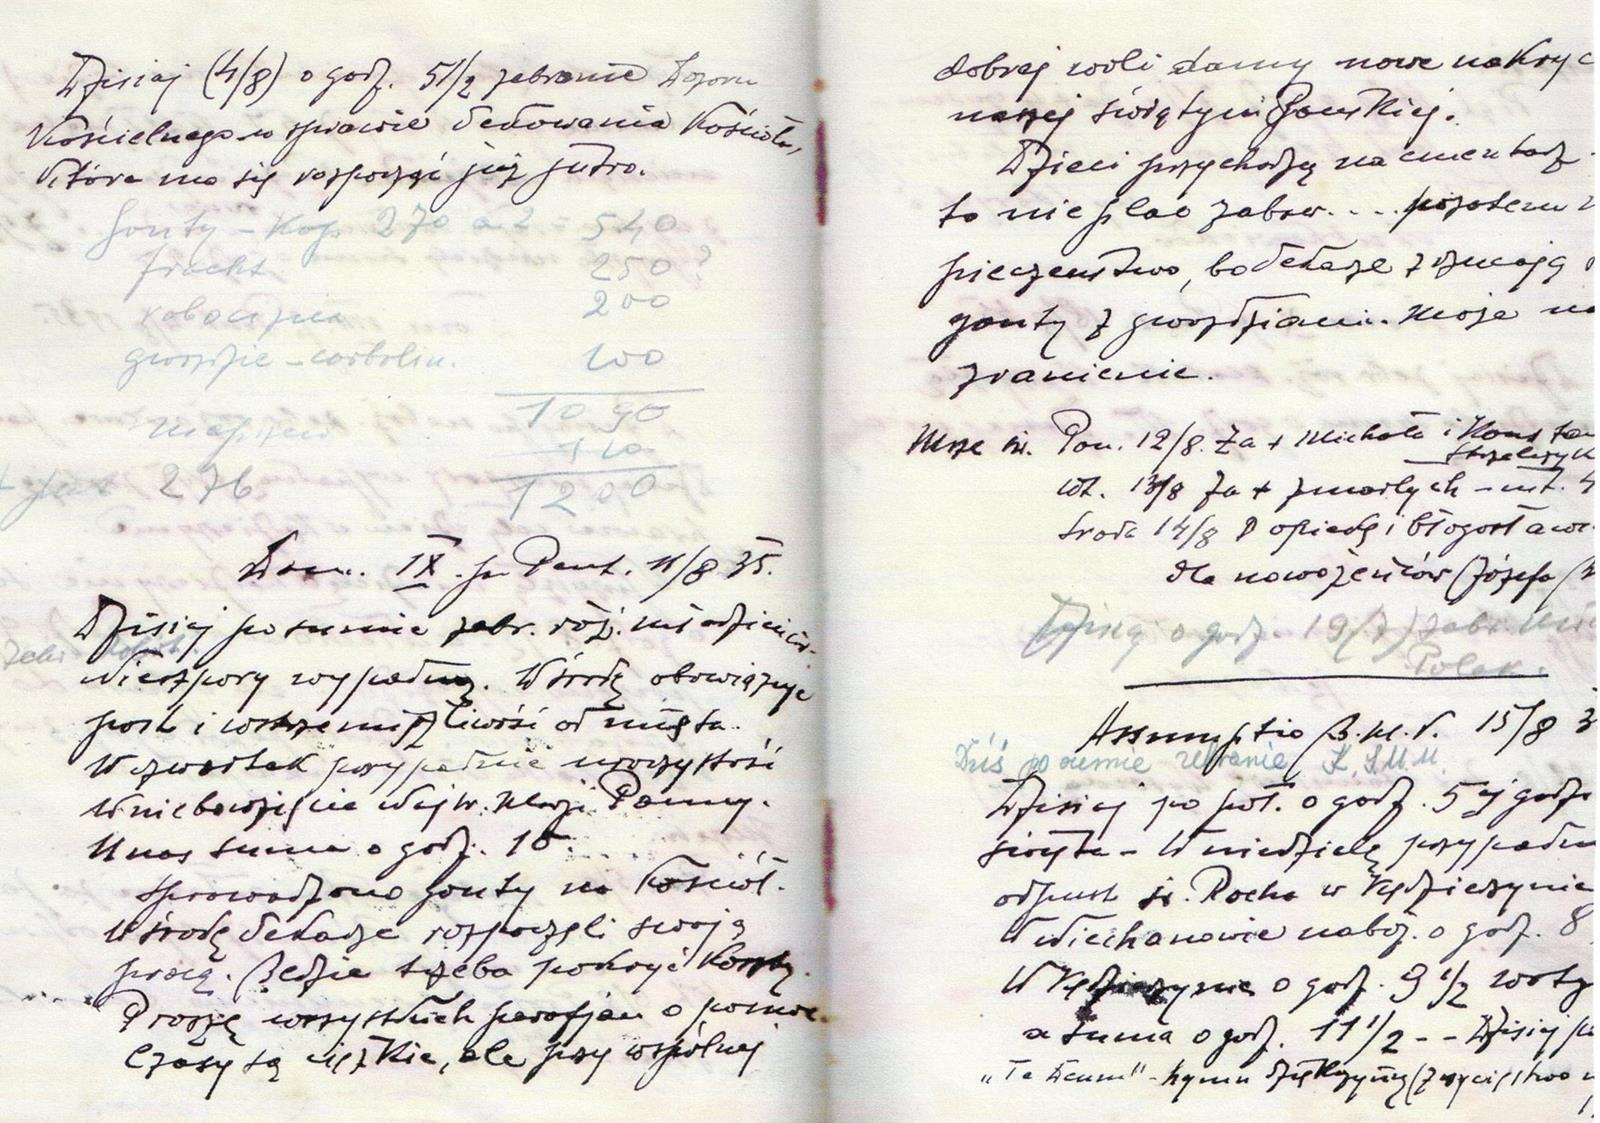 Dzisiaj (4/8) o godz. 5 1/2 zebranie Dozoru
Kościelnego w sprawie dekowania Kościoła,
które ma się rozpocząć już jutro.
Gonty - Kop. 270 a 2 = 540
fracht 250?
robocizna 200
gwoździe - carbolin. 100
1090
110
276 1200
Dom. IX. p. Pent. 11/8 35.
Dzisiaj po sumie zebr. róż. młodzieńców.
Zebr.
Nieszpory wypadną. W środę obowiązuje
post i wstrzemięźliwość od mięsa.
W czwartek przypadnie uroczystość
Wniebowzięcia Najśw. Marji Panny.
U nas suma o godz. 10.
Sprowadzono gonty na Kościół.
W środę dekarze rozpoczęli swoją
pracę. Będzie trzeba pokryć koszty.
Proszę wszystkich parafjan o pomoc.
Czasy są ciężkie, ale przy wspólnej
dobrej woli damy nowe nakryc
naszej świątyni Pańskiej.
Dzieci przychodzą na cmentarz
to nie plac zabaw.... pozatem
pieczeństwo, bo dekarze zrzucają
gonty z gwoździami. Może na
zranienie.
Msze św. Pon. 12/8. Za + Michała i Konstan
Wt. 13/8 Za + zmarłych - int.
Środa 14/8 O opiekę i błogosławi
dla nowożeńców (Józefa
Dzisiaj o godz. 19 (7) zebr.
Polek.
Assumptio B.M.V. 15/8 3
Dziś po sumie zebranie K.S.M.M.
Dzisiaj po poł. o godz. 5ej godz
święta - W niedzielę przypadn
odpust św. Rocha w Kędzierzynie
W Niechanowie naboż. o godz. 8
W Kędzierzynie o godz. 9 1/2 woty
a suma o godz. 11 1/2 -- Dzisiaj
"Te Deum" - hymn dziękczynny (zwycięstwo